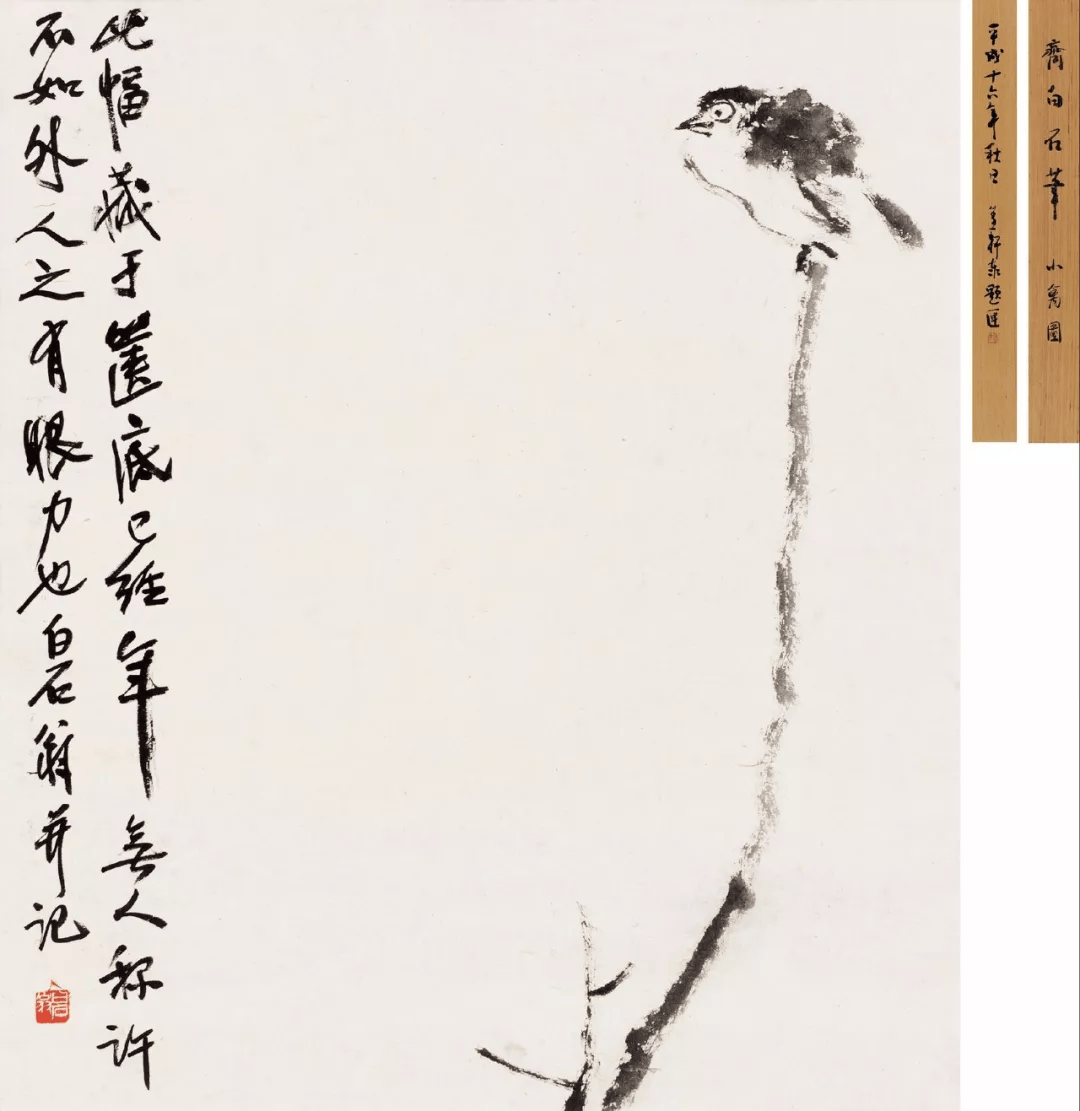 齊白石筆 小禽圖
平成十六年秋日 軒題
此幅藏于篋底已經年無人称許
不如外人之有眼力也白石翁并記
白石翁